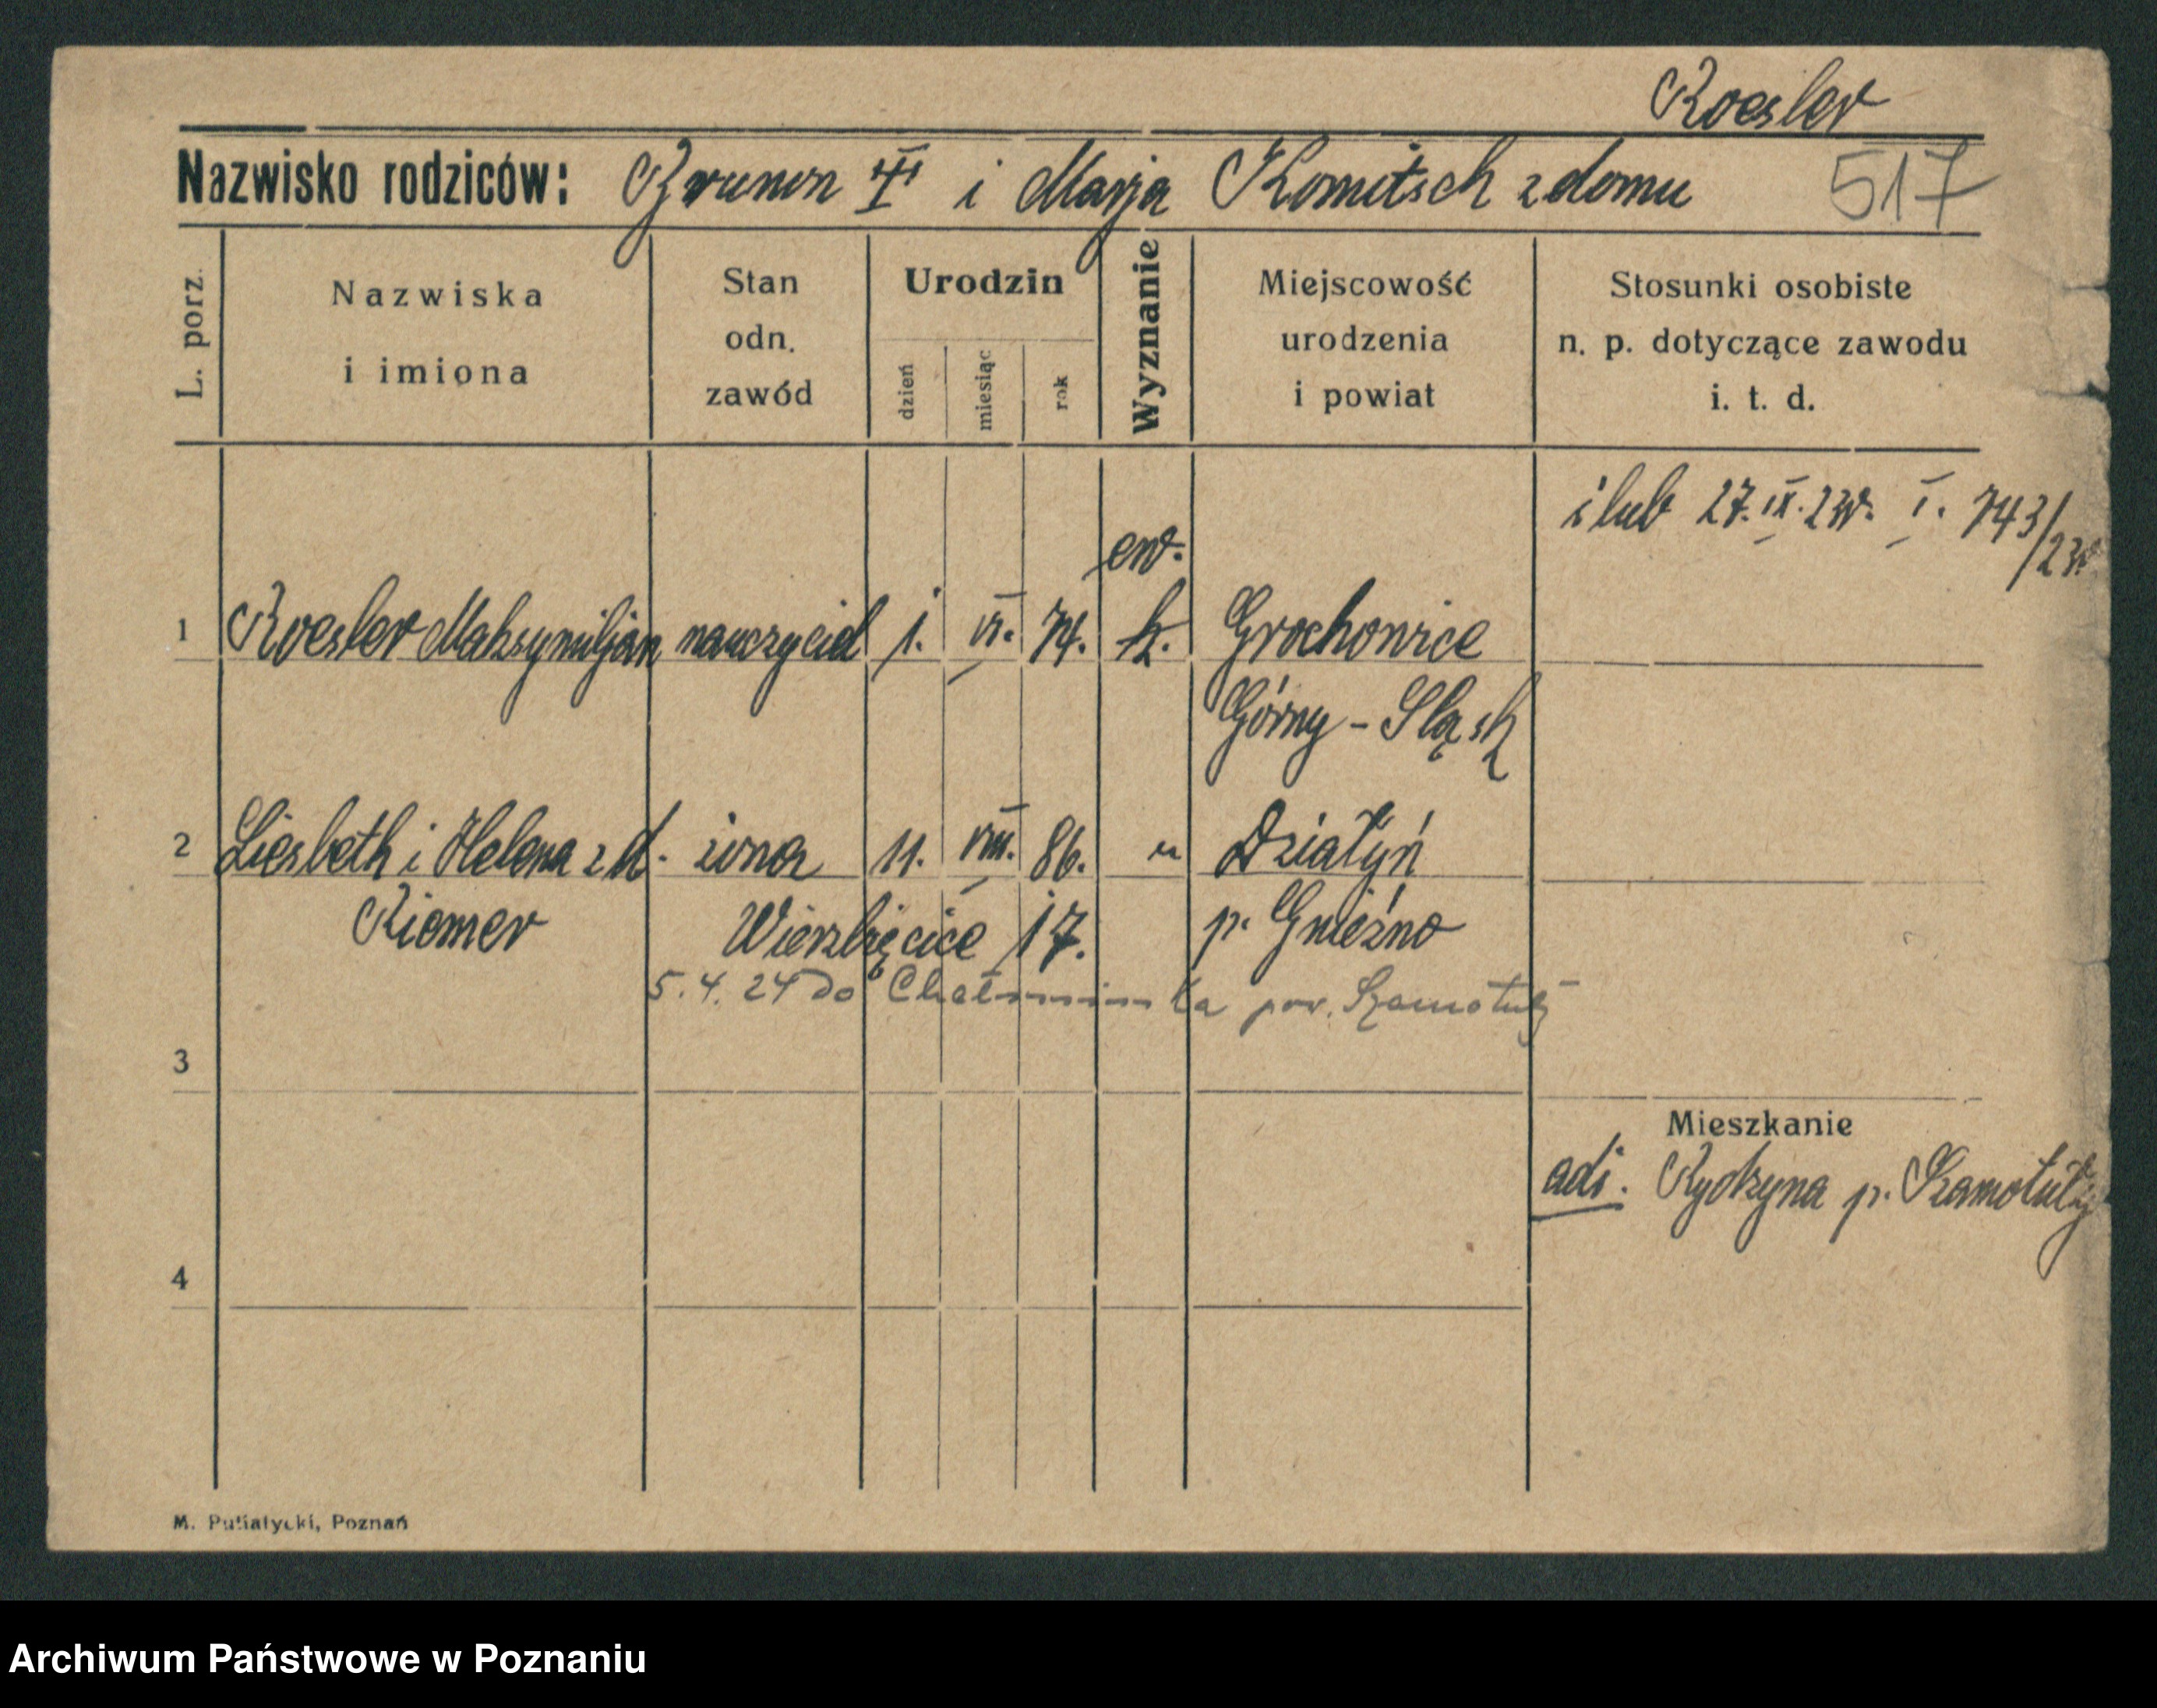 Roesler
Nazwisko rodziców: Brunon i Marja Komitsch z domu 517
L. porz.
Nazwiska
i imiona
Stan
odn.
zawód
Urodzin
dzień
miesiąc
rok
Wyznanie
Miejscowość
urodzenia
i powiat
Stosunki osobiste
n. p. dotyczące zawodu
i. t. d.
ślub 27. IX. 23r. I. 743/23r
ew.
1 Roesler Maksymiljan nauczyciel 1. VI. 74. k. Grochowice
Górny-Śląsk
2 Liesbeth i Helena z d. żona 11. VIII. 86. " Działyń
Riemer Wierzbięcice 17. p. Gniezno
5.4.24 do pow. Szamotuły
3
Mieszkanie
adi. Rydzyna p. Szamotuły
4
M. Putiatycki, Poznań
Archiwum Państwowe w Poznaniu